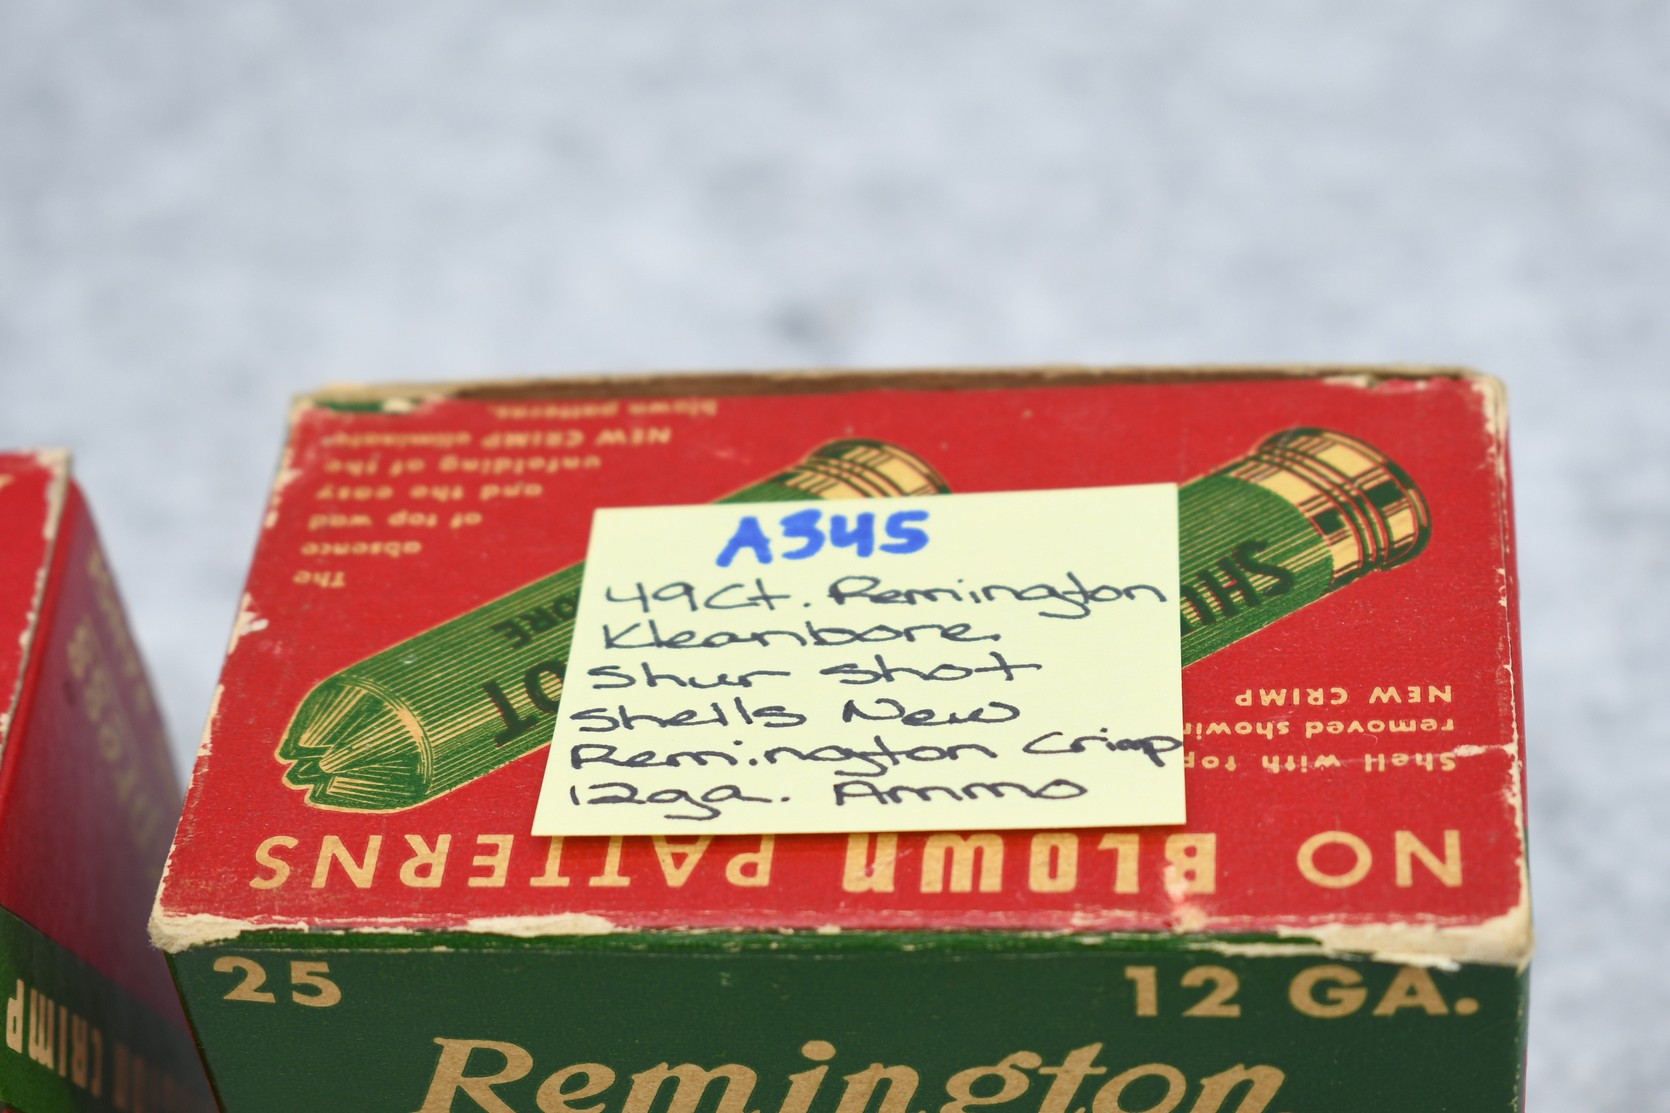 A345
49Ct. Remington
Kleanbore
Shur Shot
Shells New
Remington Crimp
12ga. Ammo
NO BLOWN PATTERNS
Shell with top
removed showin
NEW CRIMP
SHU
OT
ORE
The
absence
of top wad
and the easy
unfolding of the
NEW CRIMP eliminate
blown patterns.
25
12 GA.
Remington
CRIMP